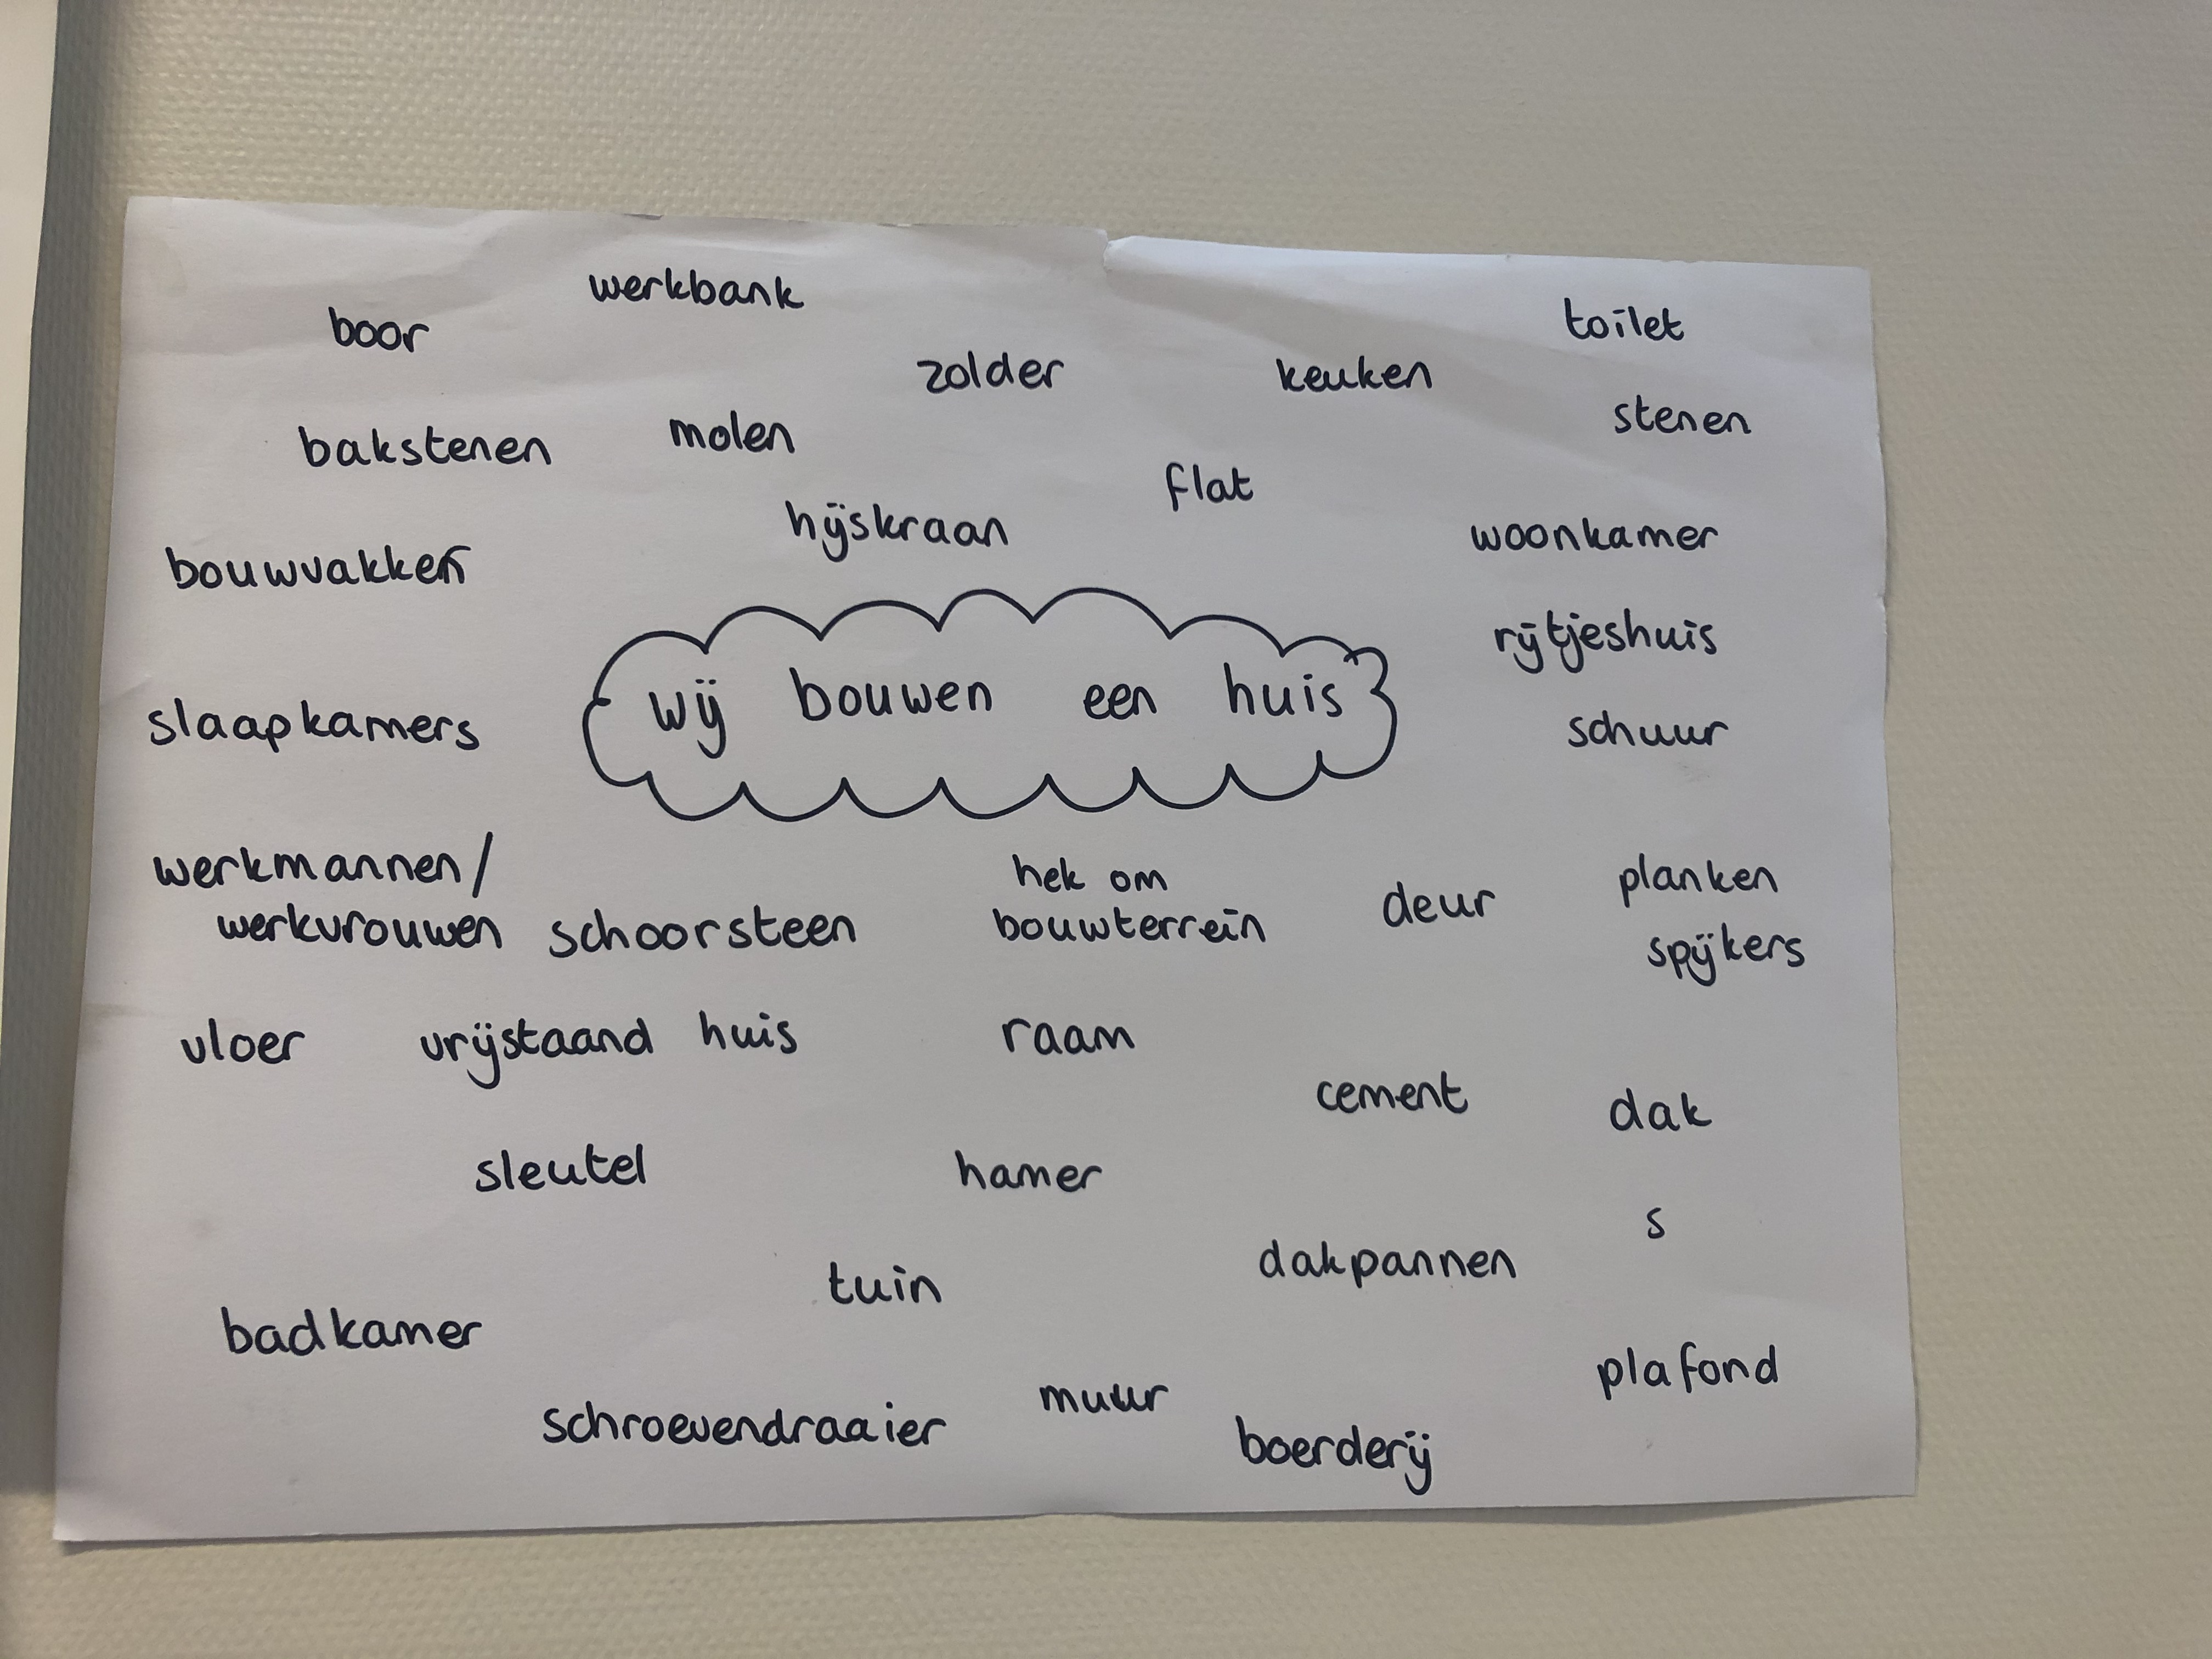 werkbank
boor
toilet
zolder
keuken
stenen
bakstenen
molen
flat
hijskraan
woonkamer
bouwvakker
rijtjeshuis
wij bouwen een huis
slaapkamers
schuur
werkmannen/
werkvrouwen
schoorsteen
hek om
bouwterrein
deur
planken
spijkers
vloer
vrijstaand huis
raam
cement
dak
sleutel
hamer
s
dakpannen
tuin
badkamer
plafond
muur
schroevendraaier
boerderij